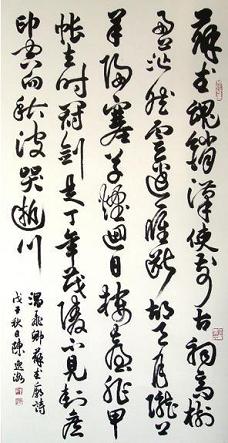 蘇武魂銷漢使前古祠高樹
兩茫然雲邊雁斷胡天月隴上
羊歸塞草煙迴日樓臺非甲
帳去時冠劍是丁年茂陵不見封侯
印空向秋波哭逝川
溫飛卿蘇武廟詩
戊子秋日陳